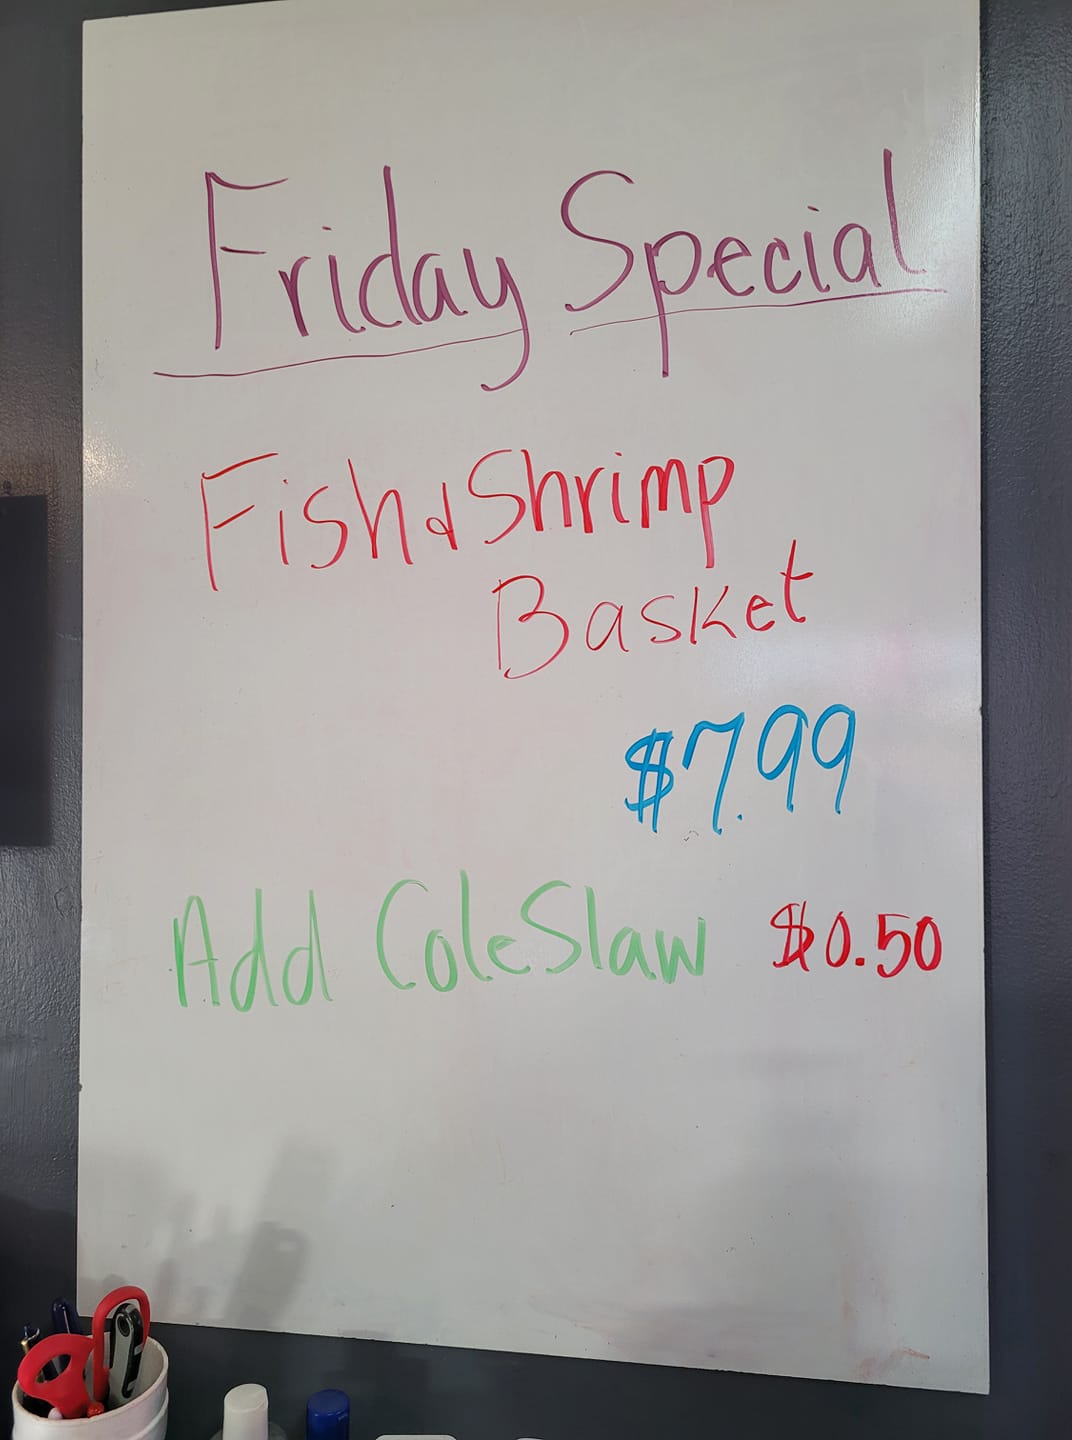 Friday Special
Fish & Shrimp
Basket
$7.99
Add ColeSlaw $0.50